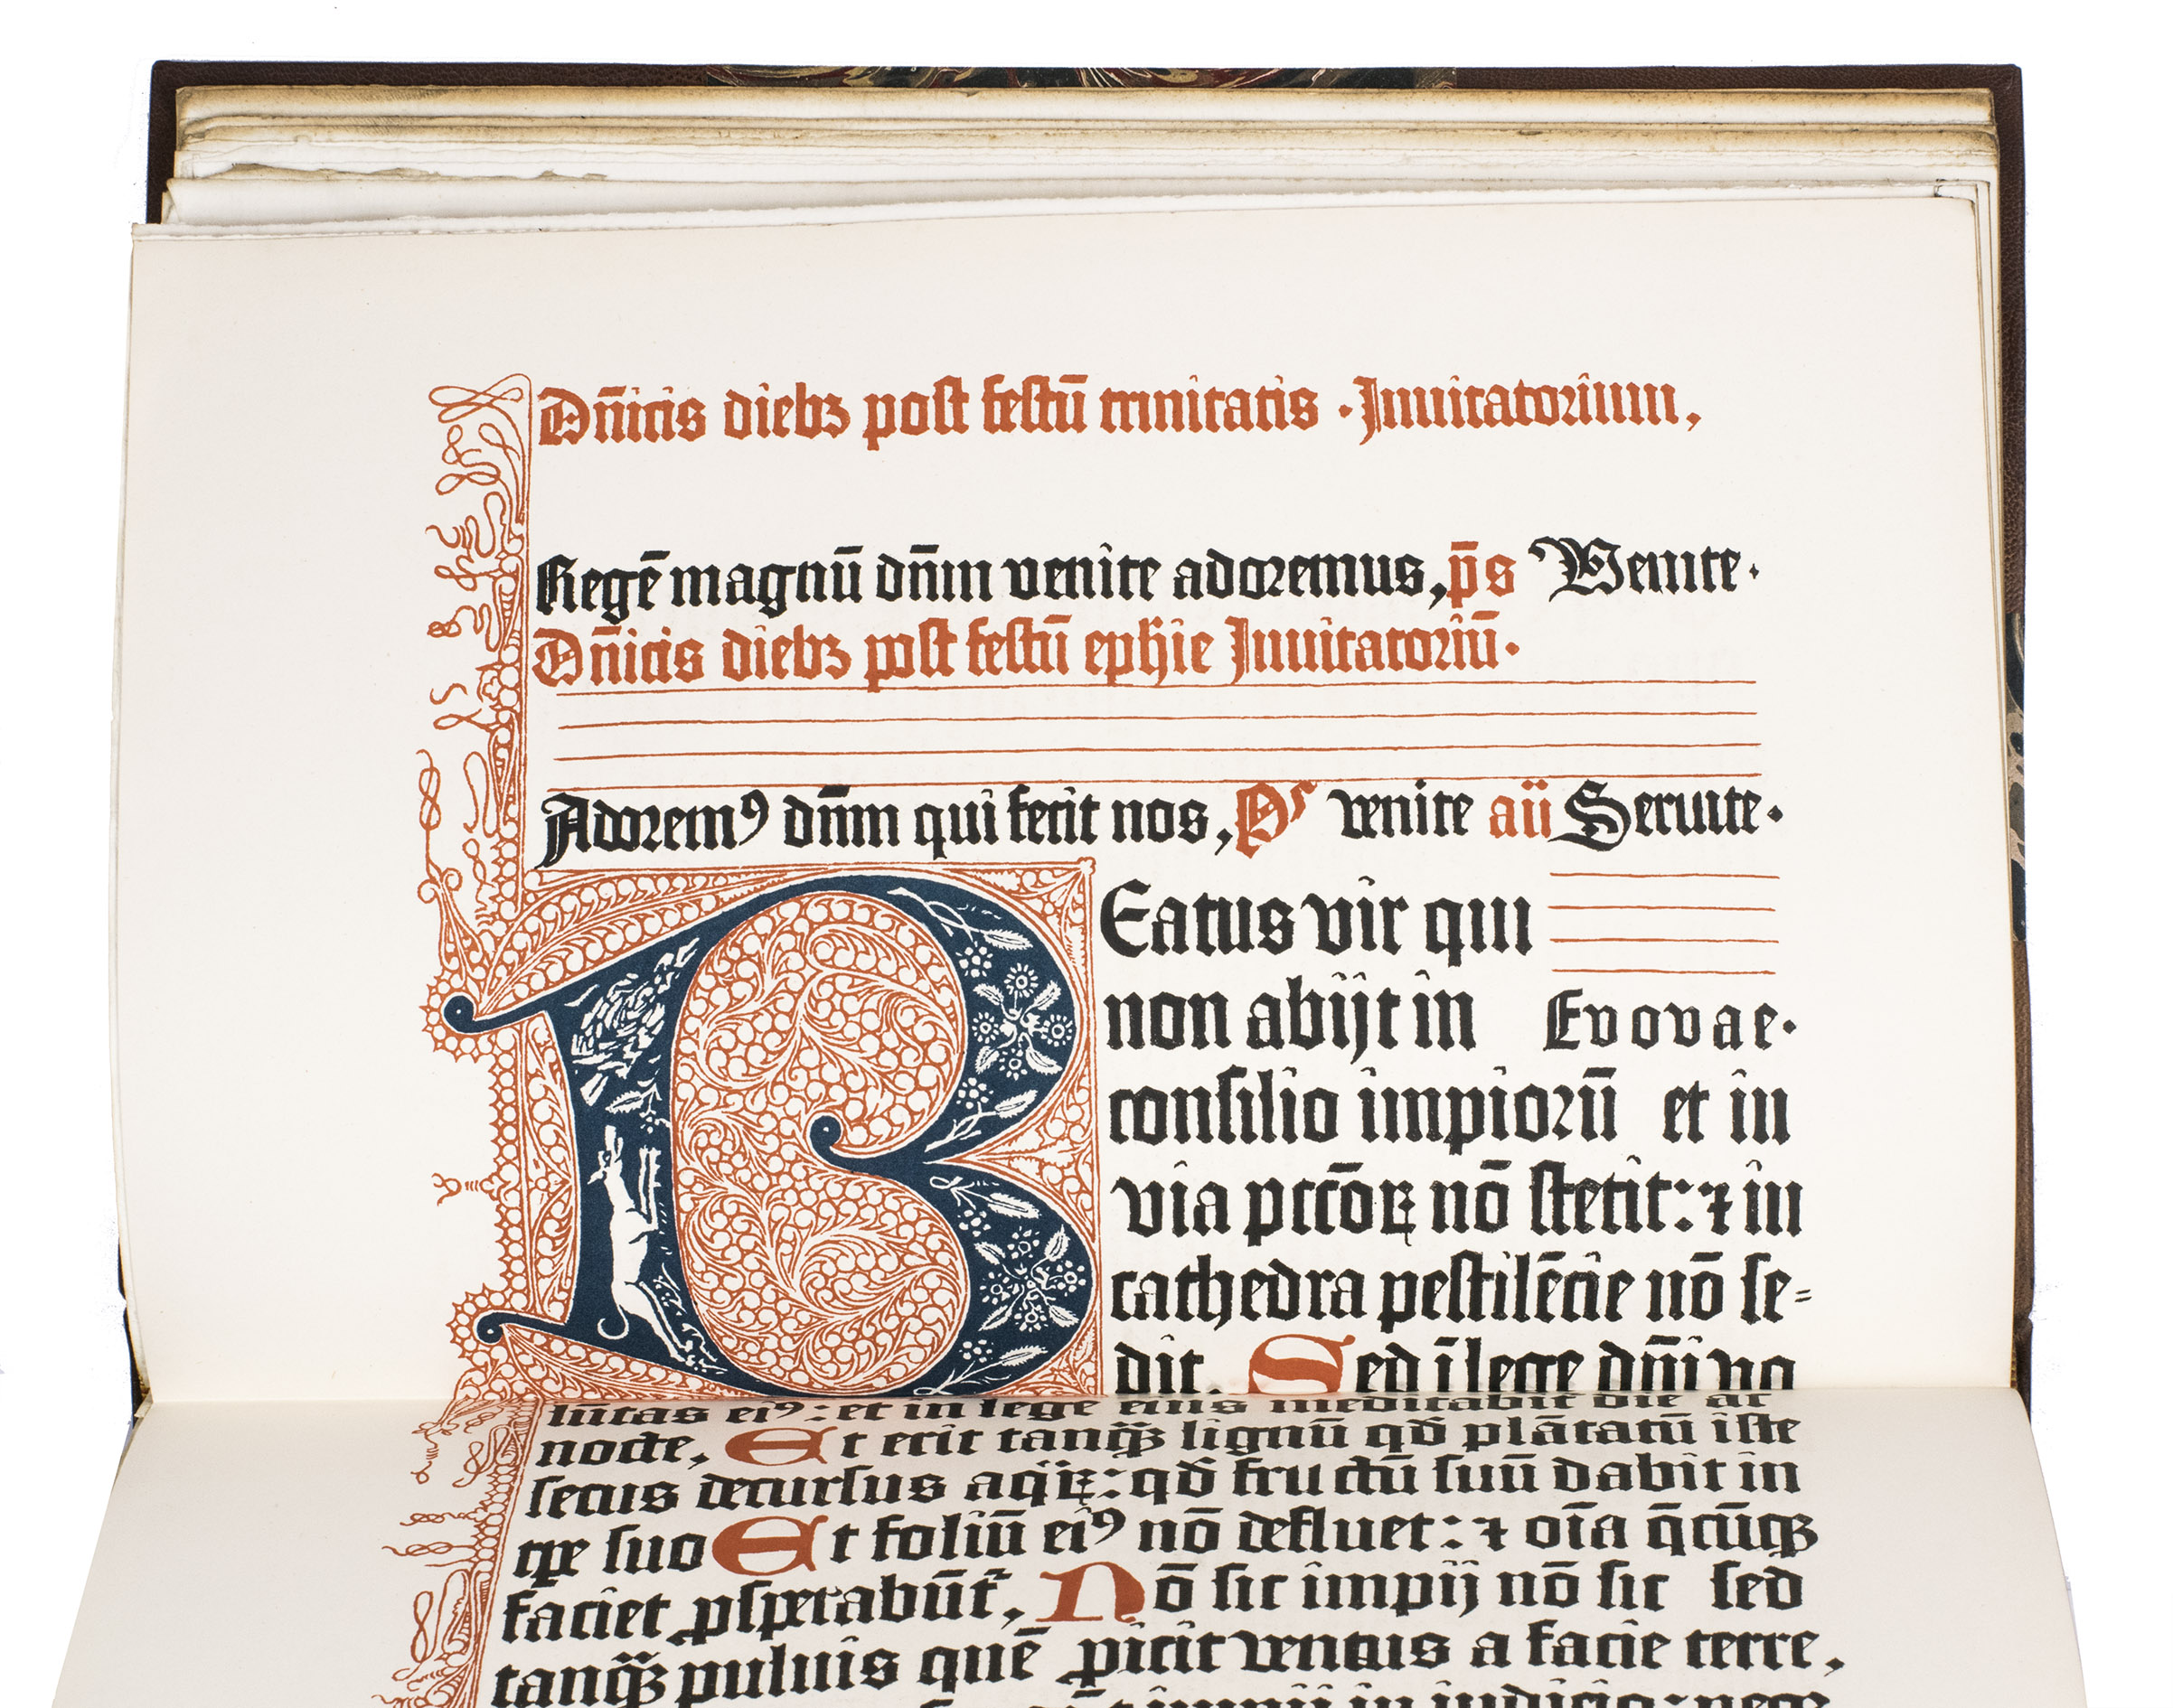 Dn̄icis diebꝫ post festū trinitatis · Inuitatorium,
Regē magnū dn̄m venite adoremus, p̄s Venite·
Dn̄icis diebꝫ post festū ephie Inuitatoriū·
Adoremꝰ dn̄m qui fecit nos, Ps venite an̄ Seruite·
BEatus vir qui
non abijt in Evovae·
consilio impioꝛū et in
via pcc̄oꝝ nō stetit: ⁊ in
cathedra pestilēcie nō se⸗
dit, Sed ī lege dn̄i vo
lūtas eiꝰ: et in lege eius meditabit die ac
nocte, Et erit tanqꝫ̄ lignū qđ plātatū iste
secus decursus aqꝝ̄: qđ fructū suū dabit in
tꝑe suo Et foliū eiꝰ nō defluet: ⁊ oīa q̄cūqꝫ
faciet ꝓsperabūt᷑, Nō sic impij nō sic sed
tanqꝫ̄ puluis quē ꝓicit ventus a facie terre,